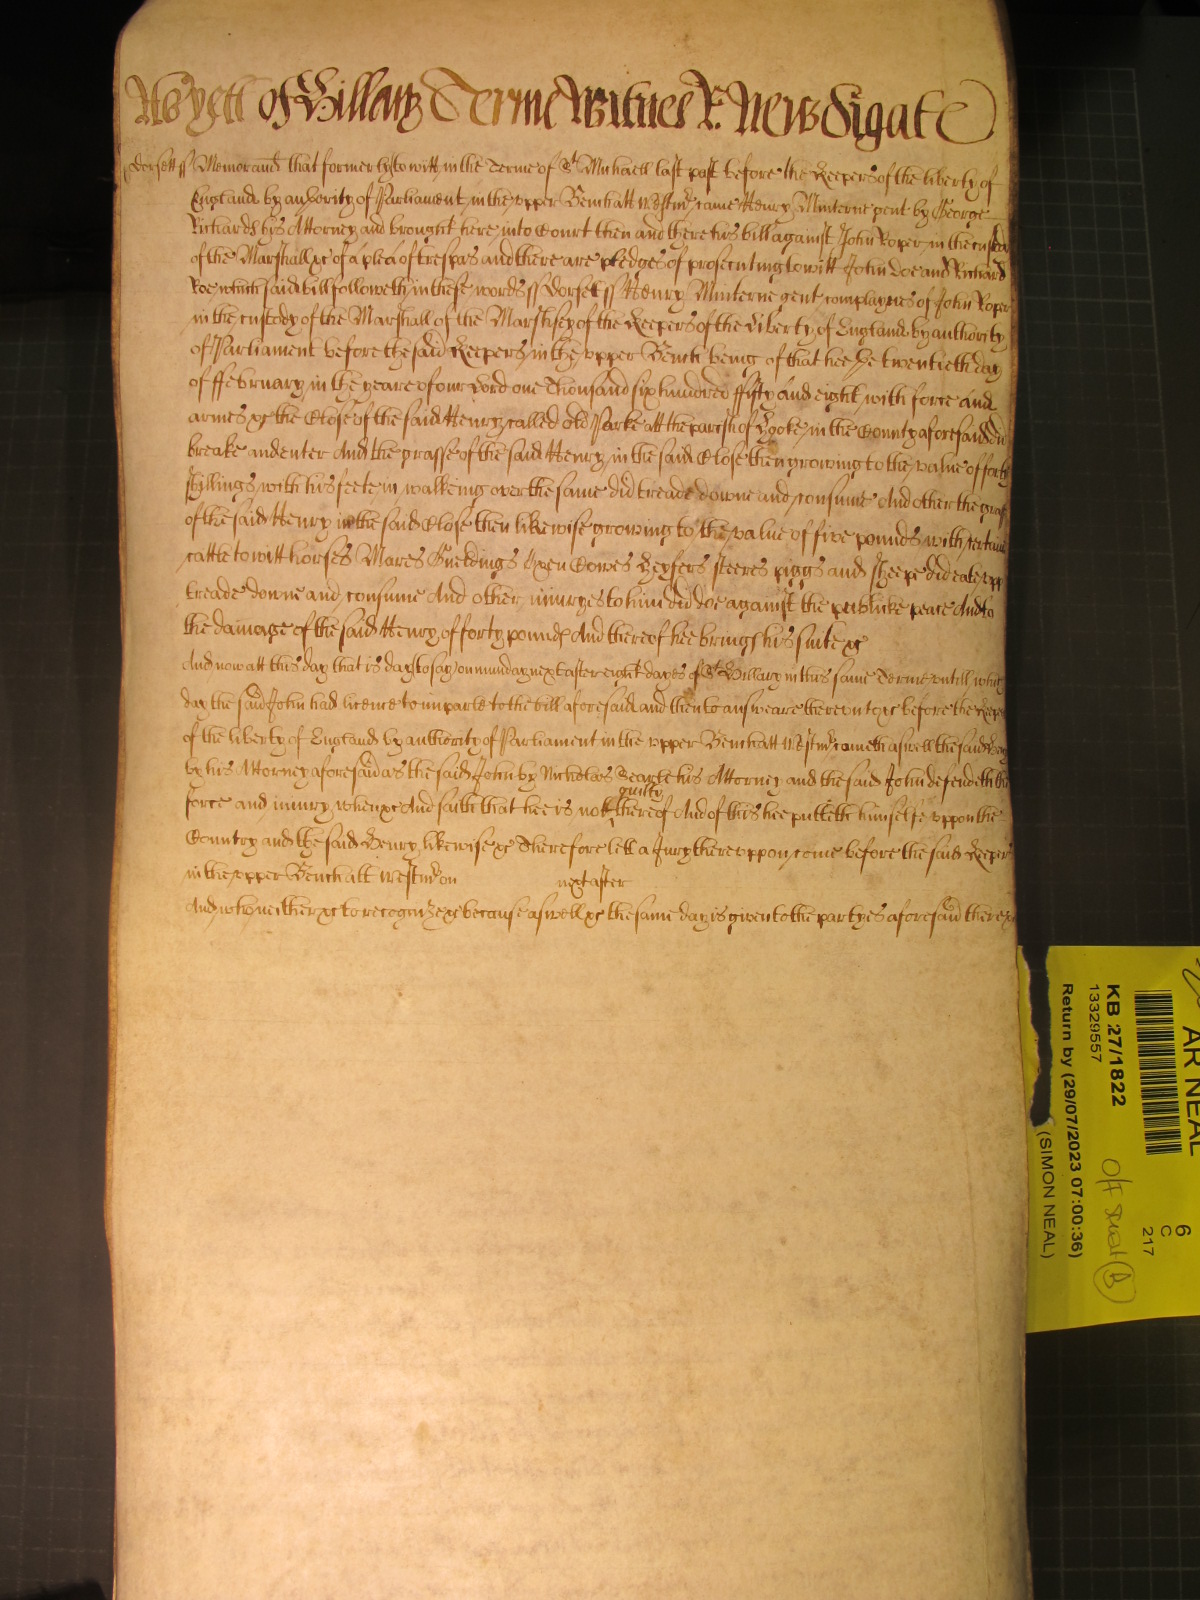 As yett of Hillary Terme Witnes R: Newdigate
Dorsett ss Memorand that formerly to witt in the Terme of St Michaell last past before the Keepers of the liberty of
England by authority of Parliament in the upper Bench att Westmr came Henry Minterne gent by George
Richards his Attorney and brought here into Court then and there his bill against John Roper in the custody
of the Marshall &c of a plea of trespas and there are pledges of prosecuting to witt John Doe and Richard
Roe which said bill followeth in these words ss Dorset ss Henry Minterne gent complaynes of John Roper
in the custody of the Marshall of the Marshlsey of the Keepers of the Liberty of England by authority
of Parliament before the said Keepers in the upper Bench being of that hee the twentieth day
of ffebruary in the yeare of our Lord one Thousand six hundred ffifty and eight with force and
armes &c the Close of the said Henry called old Parke att the parish of Hooke in the County aforesaid did
breake and enter And the grasse of the said Henry in the said Close then growing to the value of forty
shillings with his feete in walkeing over the same did treade downe and consume And other the grass
of the said Henry in the said Close then likewise growing to the value of five pounds with certaine
cattle to witt horses Mares Gueldings Oxen Cowes Heyfers steeres piggs and sheepe did eate upp
treade downe and consume And other injuryes to him did doe against the publicke peace And to
the damage of the said Henry of forty pounds And thereof hee brings his suite &c
And now att this day that is day to say on munday next after eight dayes of St Hillary in this same Terme untill which
day the said John had licence to imparle to the bill aforesaid and then to answeare thereunto &c before the Keepers
of the liberty of England by authority of Parliament in the upper Bench att Westmr cometh aswell the said Henry
by his Attorney aforesaid as the said John by Nicholas Searle his Attorney and the said John defendeth the
force and injury when &c And saith that hee is not guilty thereof And of this hee putteth himselfe uppon the
Country and the said Henry likewise &c Therefore lett a Jury thereuppon come before the said Keepers
in the upper Bench att Westmr on next after
And who neither &c to recognize &c because aswell &c the same day is given to the partyes aforesaid there &c
AR NEAL
KB 27/1822
13329557
Return by (29/07/2023 07:00:36)
(SIMON NEAL)
6
C
217